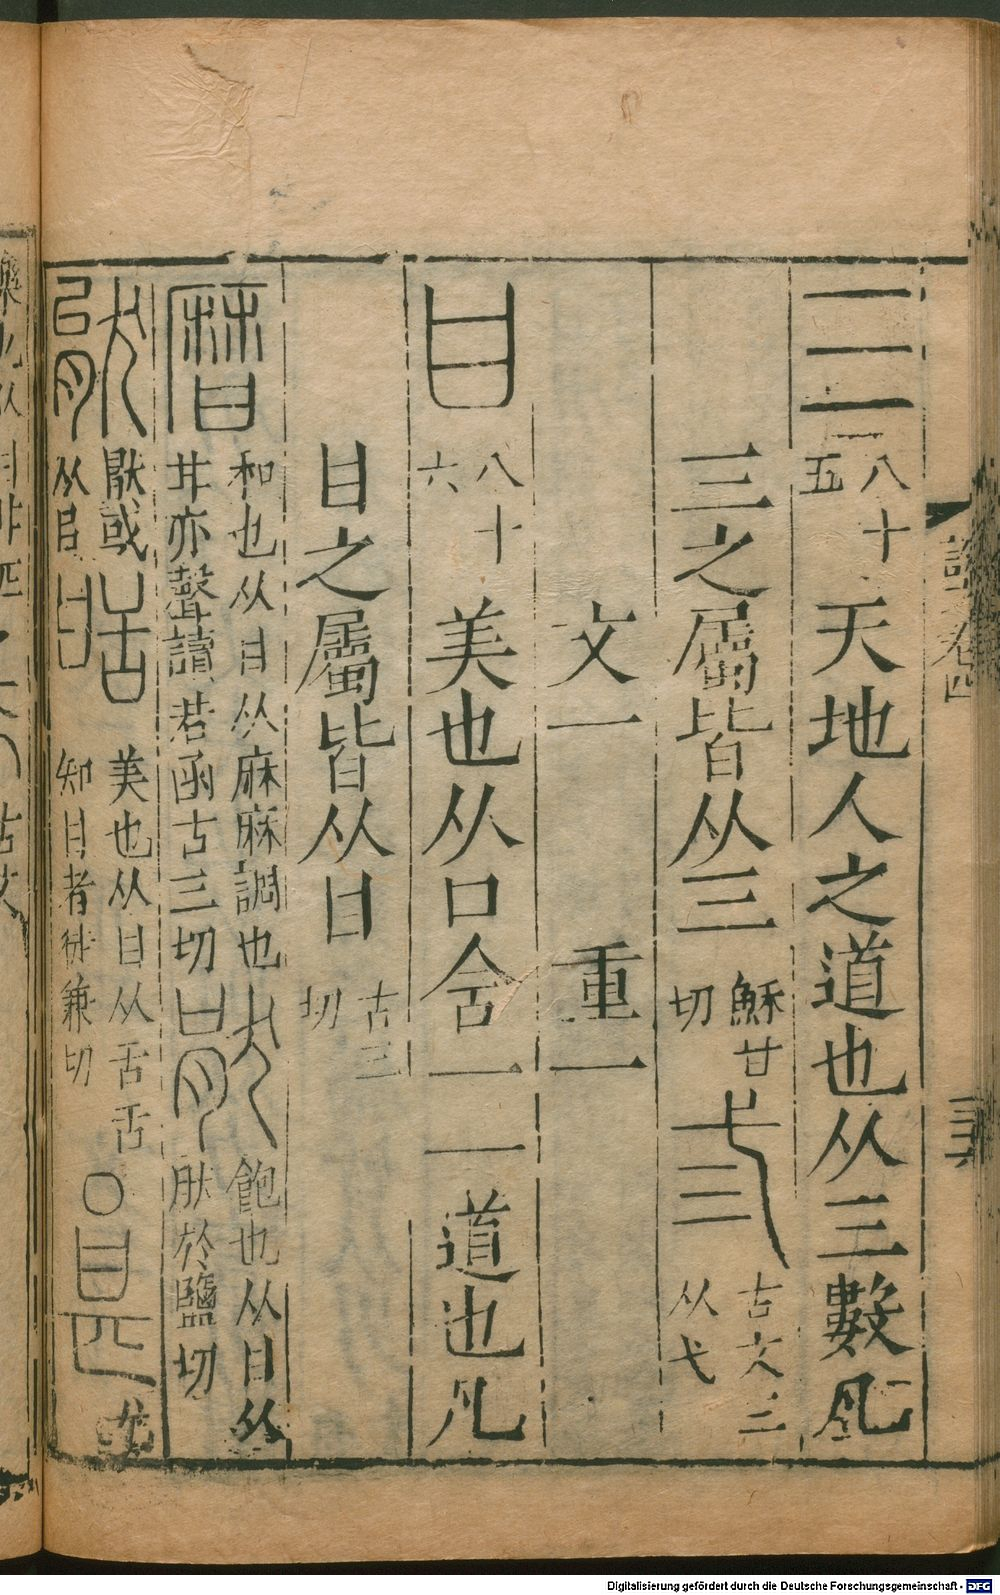 三 八十五 天地人之道也从三數凡
三之屬皆从三 穌甘切 弎 古文三从弋
文一 重一
甘 八十六 美也从口含一一道也凡
甘之屬皆从甘 古三切
和也从甘从麻麻調也甘亦聲讀若函古三切 猒 飽也从甘从肰於鹽切
猒或从㠯 美也从甘从舌舌知甘者徒兼切 〇 甚 尤
Digitalisierung gefördert durch die Deutsche Forschungsgemeinschaft - DFG